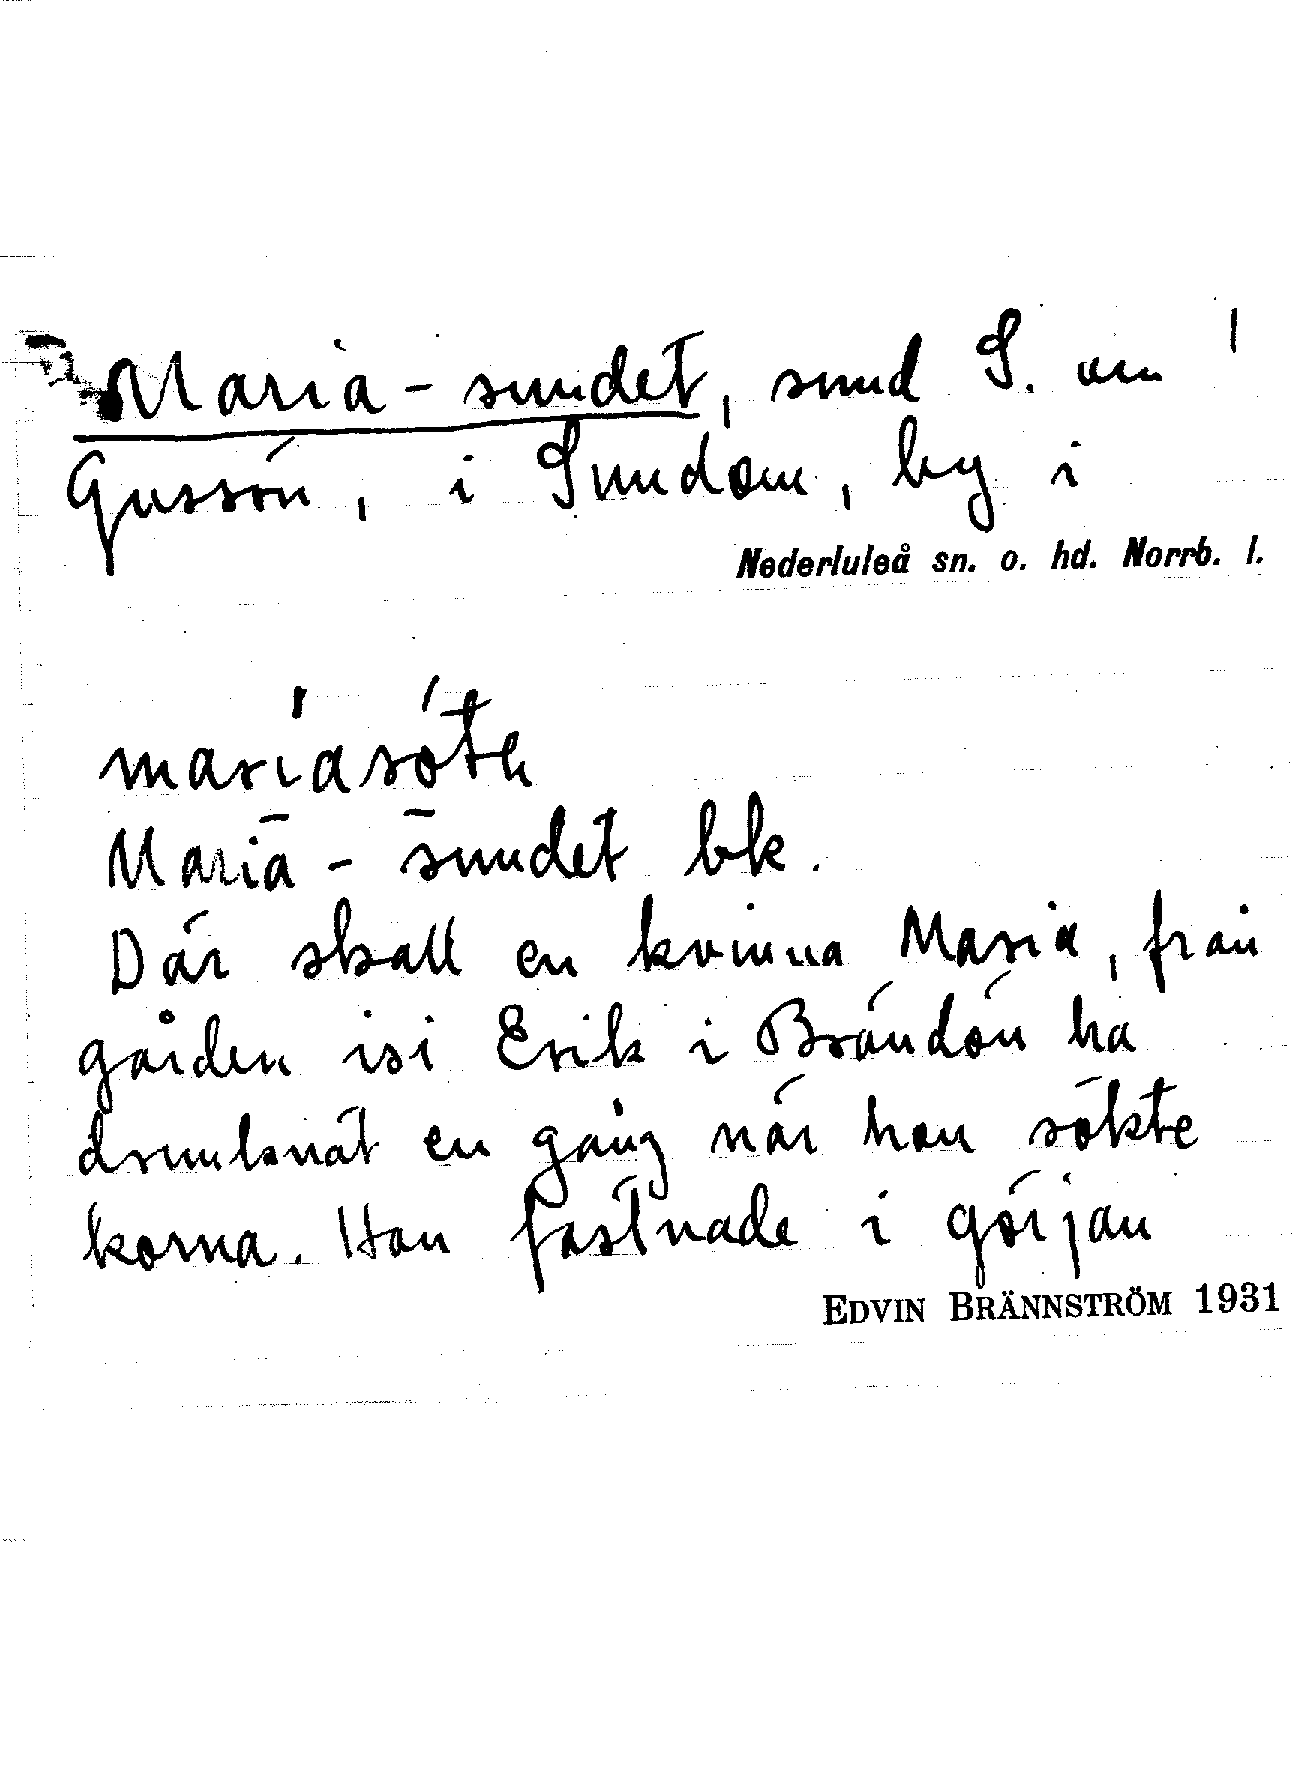 Maria-sundet, sund S. om
Gussön, i Sundom, by i
Nederluleå sn. o. hd. Norrb. l.
Maria-sundet bk.
Där skall en kvinna Maria, från
gården isi Erik i Brändön ha
drunknat en gång när hon sökte
korna. Hon fastnade i görjan
EDVIN BRÄNNSTRÖM 1931